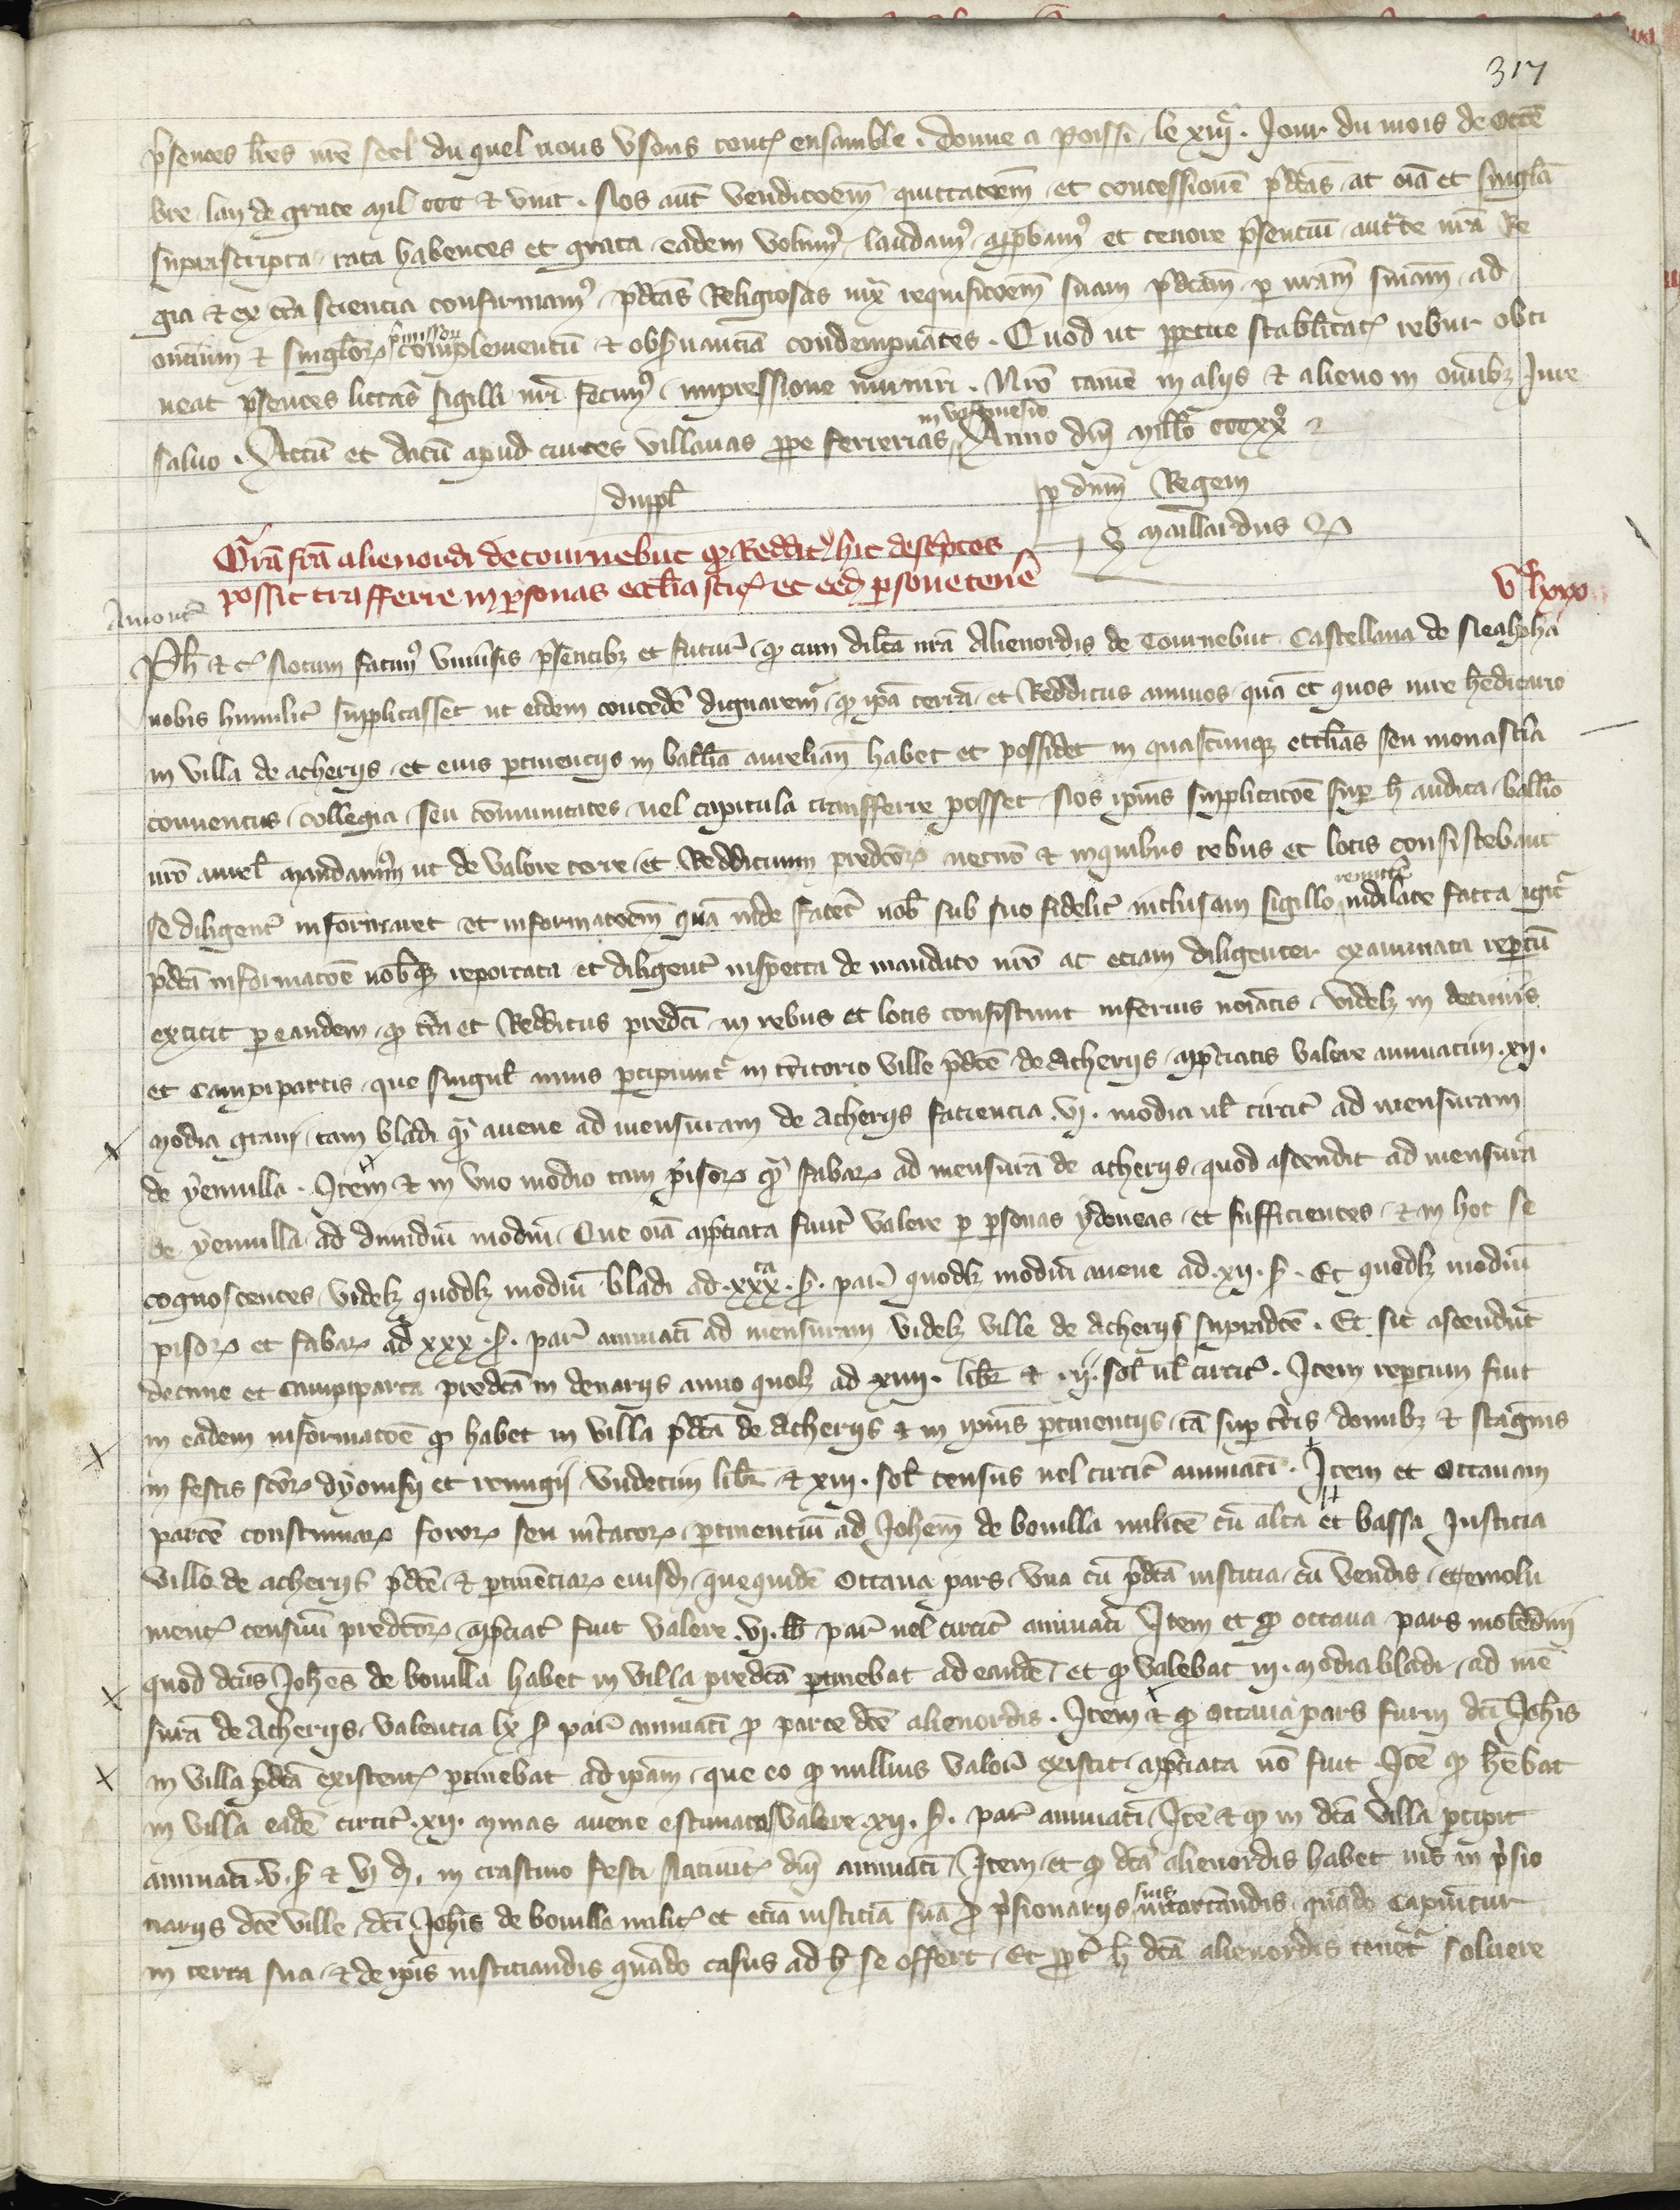 317
p̃sentes lr̃es nr̃e seel du quel nous vsons touz ensamble . donne a poissi le xiiij̃ . Jour du mois de Octẽ
bre lan de grace mil ccc & vint . Nos aut̃ vendicoẽm quittacoẽm et concessionẽ p̃dcãs ac oĩa et singl̃a
suprascripta rata habentes et grata eadem volum⁹ laudam⁹ app̃bam⁹ et tenore p̃sentiũ auct̃te nr̃a Re
gia & ex cẽta sciencia confirmam⁹ p̃dcãs Religiosas iux̃ requisicoẽm suam p̃dcãm p nr̃am sñiam ad
oĩnium & singlõꝝ p̃missoꝝ complementũ & obs̃uanciã condempnãtes . Quod ut ppetue stabilitatꝭ robur obti
neat p̃sentes litt̃as sigilli nr̃i fecim⁹ impressione muniri . Nr̃o tamẽ in alijs & alieno in omĩbꝫ Jure
saluo . Actũ et datũ apud cunctes villanas ppe ferrerias in vastinesio Anno dñi mill̃o cccxx⁰
dupl̃
p dñm Regem
maillardus
Gr̃a fc̃a alienordi de tournebut q̃ Reddit⁹ hic descp̃tos
possit trãsferre in p̃sonas eccl̃iasticꝭ et eedẽ p̃sone tenẽ
Amort̃
v lxxx
Ph̃ & cꝭ Notum facim⁹ vniũsis p̃sentibꝫ et futur̃ q̃ cum dilc̃a nr̃a Alienordis de Tournebut Castellana de Nealpha
nobis humilit̃ supplicasset ut eidem concedẽ dignarem̃ q̃ ip̃a terrã et Redditus annuos quã et quos iure hẽditario
in villa de acherijs et eius ptinencijs in ballĩa aurelian̄ habet et possidet in quascũnqꝫ eccl̃ias seu monastia
conuentus collegia seu cõmunitates uel capitula transferre posset Nos ip̃ius supplicacoẽ sup h̃ audita balliõ
nr̃o aurel̃ mandauim⁹ ut de valore terre et Reddituum predcõꝝ necnõ & in quibus rebus et locis consistebant
se diligent̃ informaret et informacoẽm quã inde facet̃ nob̃ sub suo fidelit̃ inclusam sigillo remitt̃et indilate facta igit̃
p̃dcã informacoẽ nob̃qꝫ reportata et diligent̃ inspecta de mandato nr̃o ac etiam diligenter examinata reptũ
extitit p eandem q̃ tr̃a et Redditus predcĩ in rebus et locis consistunt inferius noĩatis . videlꝫ in decimis
et Campipartis que singul̃ annis pcipiunt̃ in tr̃itorio ville p̃dcẽ de Acherijs app̃ciatis valere annuatim . xij .
modia grani tam bladi q̃ auene ad mensuram de Acherijs faciencia . vj . modia ul̃ circit̃ ad mensuram
de yenuilla . Item & in vno modio tam pisoꝝ q̃ fabaꝝ ad mensurã de acherijs quod ascendit ad mensurã
de yenuilla ad dimidiũ modiũ Que oĩa app̃ciata fuer̃t valere p psonas ydoneas et sufficientes & in hoc se
cognoscentes videlꝫ quodlꝫ modiũ bladi ad . xxxta . s̃ . par̃ quodlꝫ modiũ auene ad . xij . s̃ . Et quodlꝫ modiũ
pisoꝝ et fabaꝝ ad xxx . s̃ . par̃ annuatĩ ad mensuram videlꝫ ville de Acherijs supradcẽ . Et sic ascendũt
decime et campiparta predcã in denarijs anno quolꝫ ad xiiij . libr̃ & . ij . sol̃ ul̃ circit̃ . Item reptum fuit
in eadem informacoẽ q̃ habet in villa p̃dcã de Acherijs & in ip̃ius ptinencijs tã sup tr̃is domibꝫ & stagnis
in festis scõꝝ dyonisij et remigij vndecim libr̃ & xiij . sol̃ census uel circit̃ annuatĩ . Item et octauam
partẽ constumaꝝ foroꝝ seu m̃catoꝝ ptinentiũ ad Johẽm de bouilla militẽ cũ alta et bassa Justicia
ville de acherijs p̃dcẽ & ptinẽciaꝝ eiusdẽ quequidẽ octaua pars vna cũ p̃dcã iusticia cũ vendis et emolu
mentꝭ censuũ predcõꝝ app̃ciat̃ fuit valere . vj . lb̃ par̃ uel circit̃ annuatĩ Item et q̃ octaua pars molẽdini
quod dcũs Johẽs de bouilla habet in villa predcã ptinebat ad eandẽ et q̃ valebat iij . modia bladi ad mẽ
surã de Acherijs valencia lx s̃ par̃ annuatĩ p parte dcẽ alienordis . Item & q̃ octaua pars furni dcĩ Joh̃is
in villa p̃dcã existentꝭ ptinebat ad ip̃am que eo q̃ nullius valor̃ existit app̃ciata nõ fuit Itẽ q̃ hẽbat
in villa eadẽ circit̃ . xij . minas auene estimatas valere . xij . s̃ . par̃ annuatĩ Itẽ & q̃ in dcã villa pcipit
annuatĩ . v . s̃ & vj d̃ . in crastino festi Natiuitꝭ dñi annuatĩ Item et q̃ dcã alienordis habet ius in p̃sio
narijs dcẽ ville dcĩ Joh̃is de bouilla militꝭ et etiã iusticiã suã p p̃sionarijs suis incarcerandis quãdo capiũtur
in terra sua & de ip̃is iusticiandis quãdo casus ad h̃ se offert Et ppt̃ h̃ dcã alienordis tenet̃ soluere